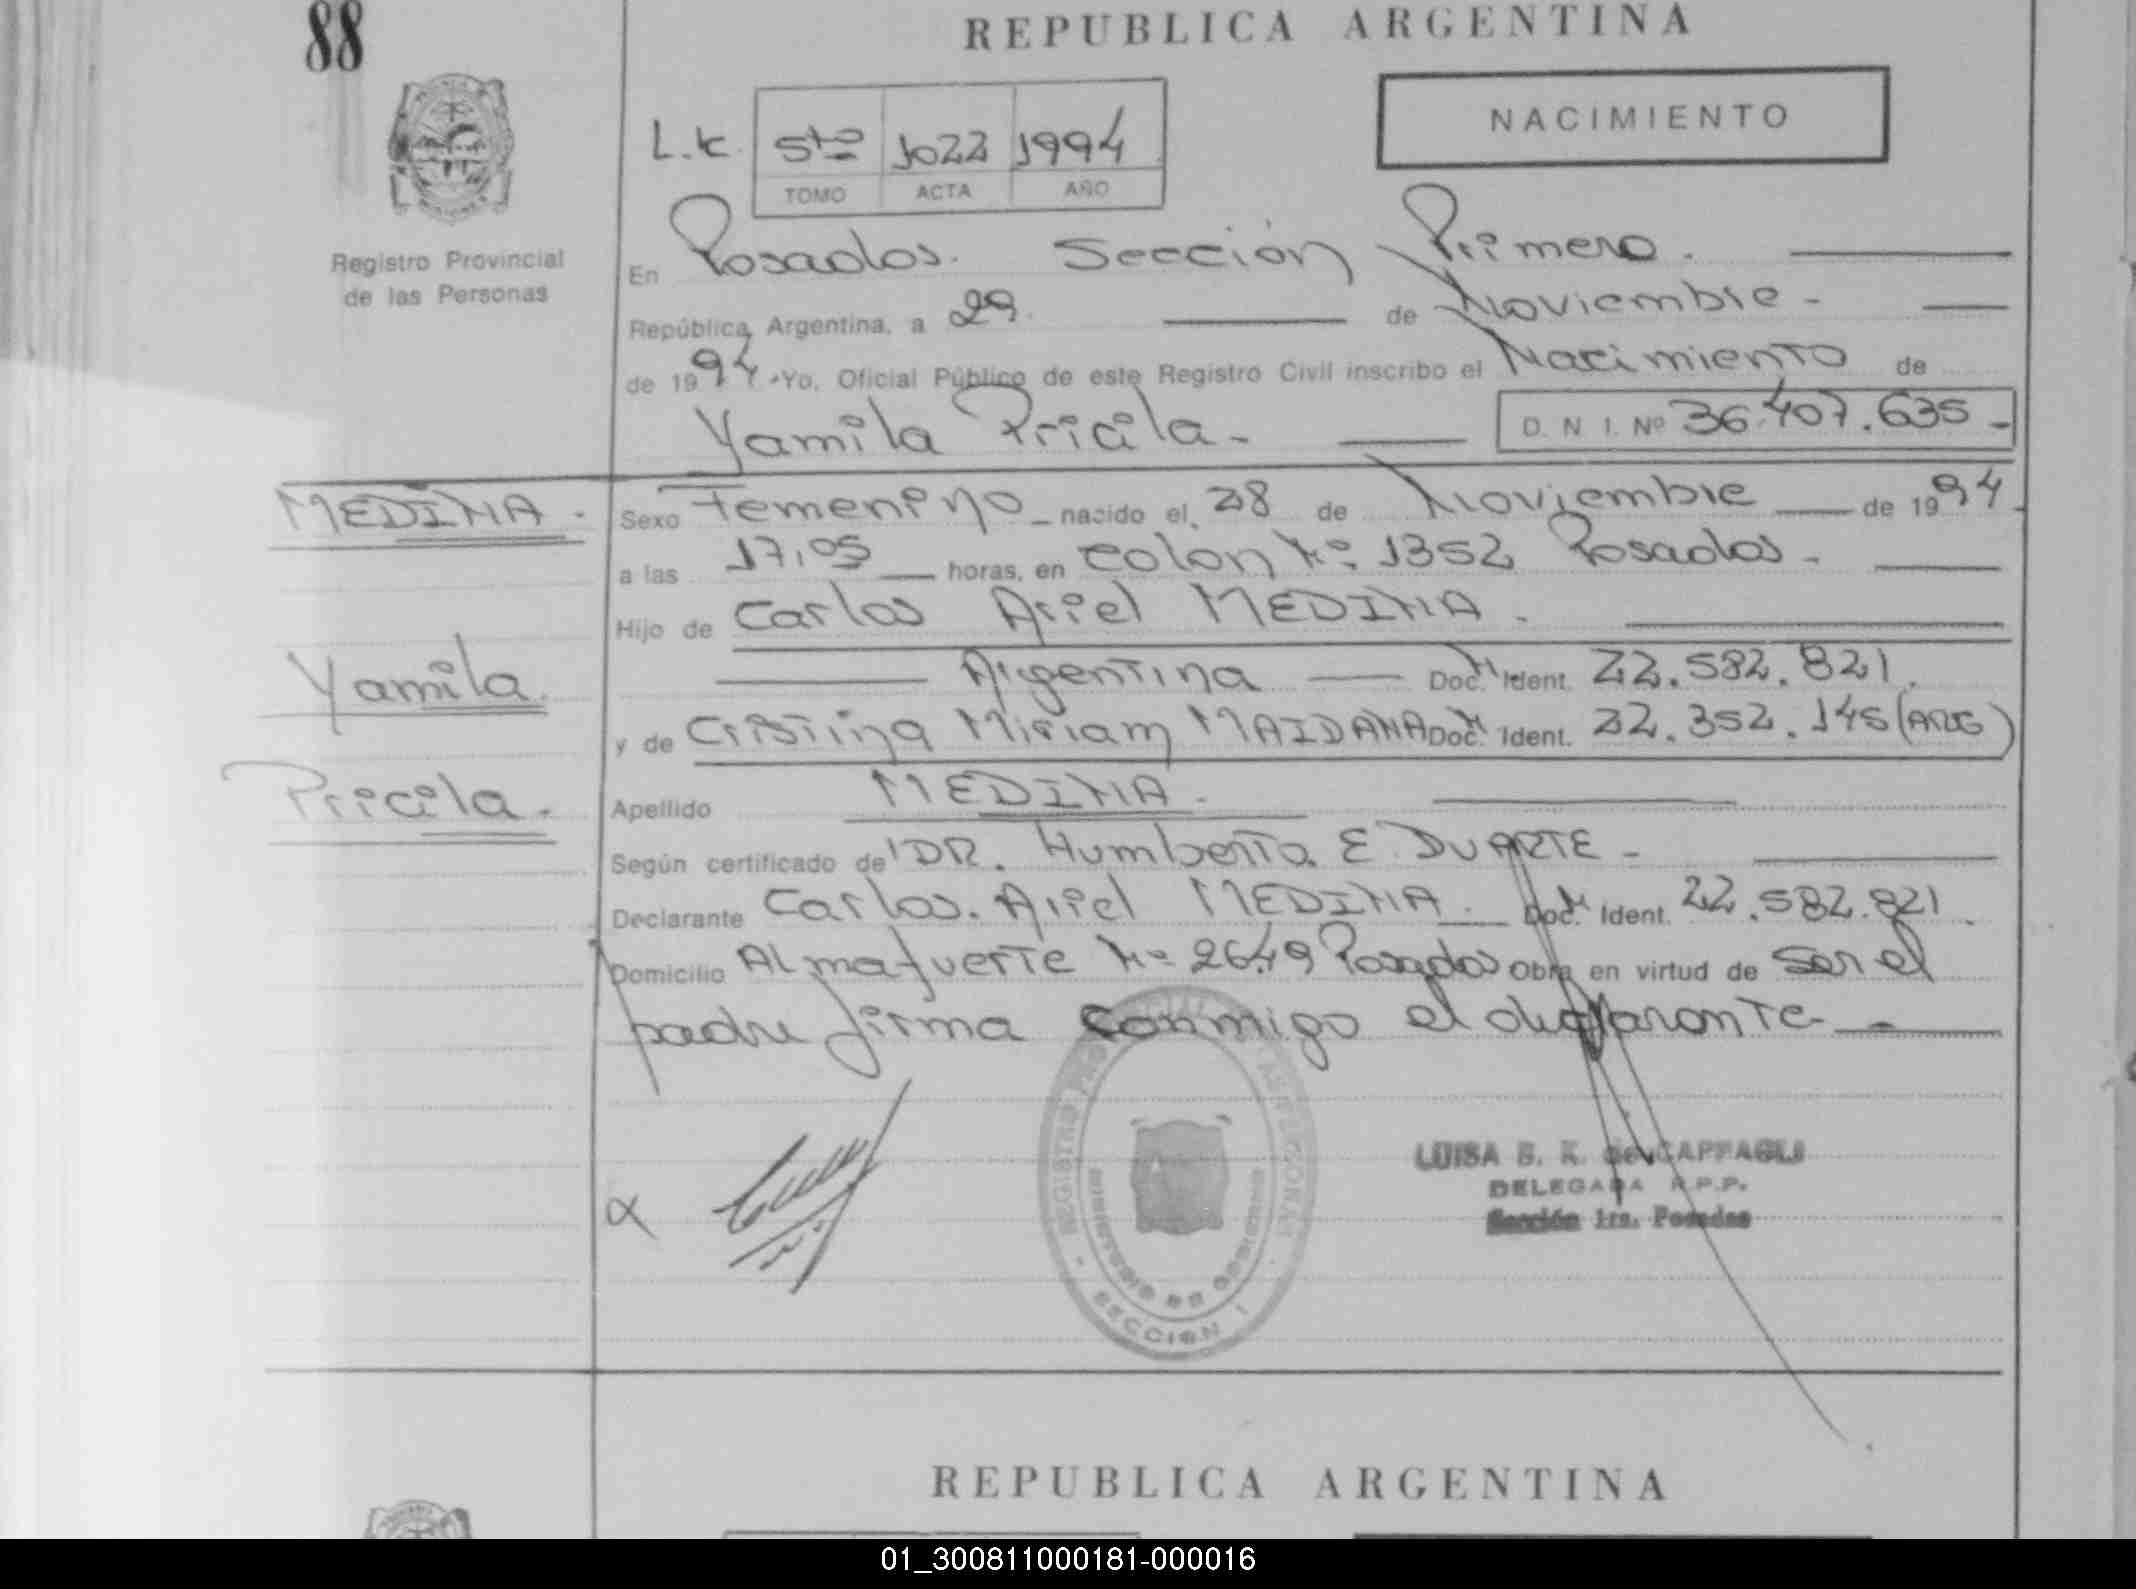 88
REPUBLICA ARGENTINA
NACIMIENTO
L.K. 5to 1022 1994
TOMO ACTA AÑO
Registro Provincial
de las Personas
En Posadas. Sección Primera.
República Argentina, a 29 de Noviembre -
de 1994 .Yo, Oficial Público de este Registro Civil inscribo el Nacimiento de
Yamila Pricila - D. N. I. Nº 36.407.635 -
MEDINA.
Sexo Femenino nacido el, 28 de Noviembre de 1994
a las 17,05 horas, en Colon Nº 1352 Posadas -
Hijo de Carlos Ariel MEDINA.
Yamila.
Argentina Doc. N. Ident. 22.582.821.
y de Cristina Miriam MAIDANA Doc. N. Ident. 22.352.145 (ARG)
Pricila.
Apellido MEDINA.
Según certificado de DR. Humberto E. DUARTE -
Declarante Carlos Ariel MEDINA. Doc. N. Ident. 22.582.821.
Domicilio Almafuerte Nº 2649 Posadas Obra en virtud de ser el
padre firma conmigo el declarante -
REGISTRO PROVINCIAL DE LAS PERSONAS
MINISTERIO DE GOBIERNO
SECCION 1
LUISA B. K. de CAPPAGLI
DELEGADA R.P.P.
Sección 1ra. Posadas
REPUBLICA ARGENTINA
01_300811000181-000016